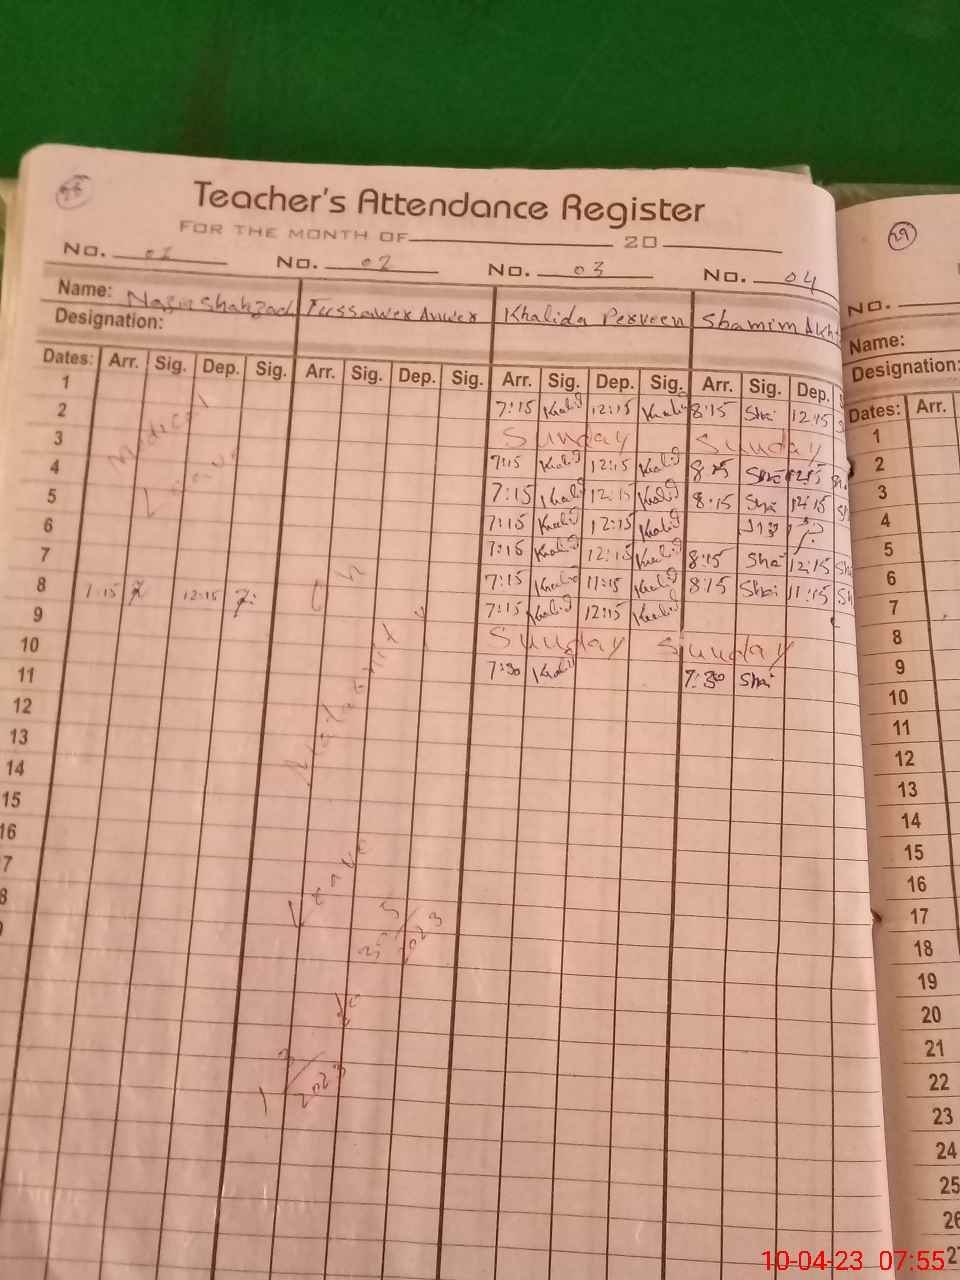 Teacher's Attendance Register
FOR THE MONTH OF 20
No. 01 No. 02 No. 03 No. 04
Name: Nasir Shahzad Tussawer Anwer Khalida Perveen Shamim Akh
Designation:
Dates: Arr. Sig. Dep. Sig. Arr. Sig. Dep. Sig. Arr. Sig. Dep. Sig. Arr. Sig. Dep. S
1 7:15 Khalid 12:15 Khalid 8:15 Sha 12:15
2 Sunday Sunday
3 7:15 Khalid 12:15 Khalid 8:15 Sha 12:15
4 7:15 Khalid 12:15 Khalid 8:15 Sha 12:15
5 7:15 Khalid 12:15 Khalid
6 7:15 Khalid 12:15 Khalid 8:15 Sha 12:15 Sha
7 7:15 Khalid 11:15 Khalid 8:15 Sha 11:15 Sh
8 7:15 12:15 7:15 Khalid 12:15 Khalid
9 Sunday Sunday
10 7:30 Khalid 7:30 Sha
11
12
13
14
15
16
7
8
Medical
Leave
On
Maternity
Leave
5
2023
to
1 3
2023
29
No.
Name:
Designation:
Dates: Arr.
1
2
3
4
5
6
7
8
9
10
11
12
13
14
15
16
17
18
19
20
21
22
23
24
25
26
27
10-04-23 07:55